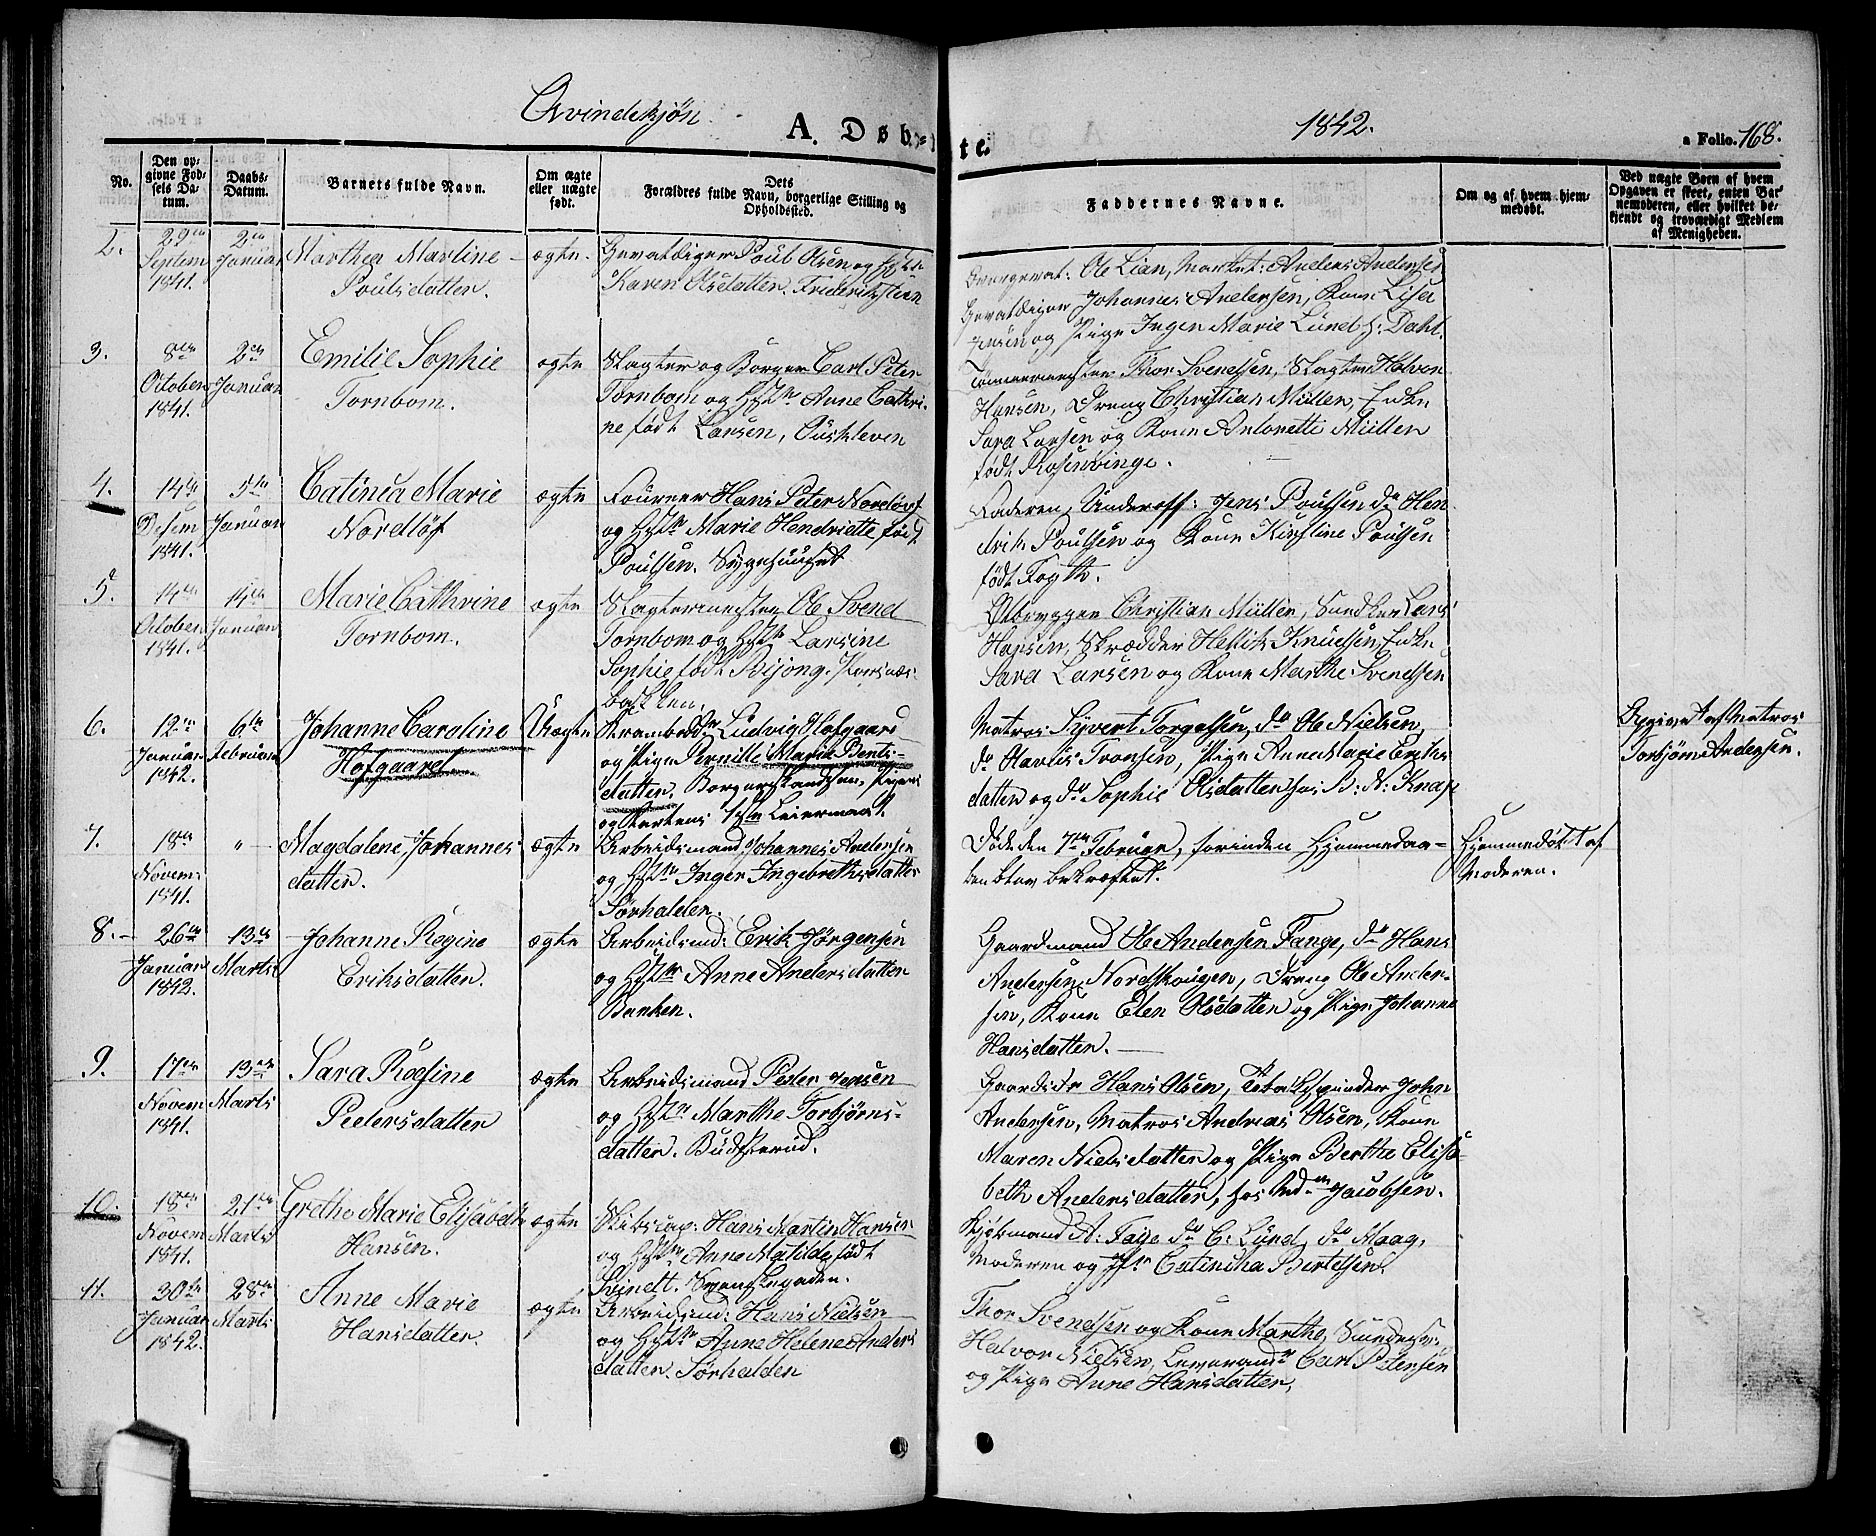 Qvindekjøn.
A. Døb-
te.
1842.
a Folio. 168.
No.
Den opgivne Fødsels Datum.
Daabs-Datum.
Barnets fulde Navn.
Om ægte eller uægte født.
Dets Forældres fulde Navn, borgerlige Stilling og Opholdssted.
Faddernes Navne.
Om og af hvem hjemmedøbt.
Ved uægte Børn af hvem Opgaven er skeet, enten Barnemoderen, eller hvilket bekjendt og troværdigt Medlem af Menigheden.
2.
29de Septem 1841.
2den Januar
Marthea Mariline
Poulsdatter.
ægte.
Gevaldiger Poul Olsen og Hst
Karen Olsdatter. Frederiksteen
Ole Lian, Anders Andersen
Gevaldiger Johannes Andersen, Kone Lisa
og Pige Inger Marie Lund h: Dahl.
3.
8de October 1841.
2den Januar
Emilie Sophie
Tornbom.
ægte
Slagter og Borger Carl Peter
Tornbom og Hst Anne Cathri-
ne født Larsen,
Tømmermester Thor Svendsen, Slagter Halvor
Hansen, Dreng Christian Müller, Enke
Sara Larsen og Kone Antonetti Müller
født Rosenvinge.
4.
14de Desem 1841.
5te Januar
Catinca Marie
Nordløf
ægte
Fourer Hans Peter Nordløf
og Hst Marie Hendriette født
Poulsen. Sygehuuset
Faderen, Underoff: Jens Poulsen do Hen
drik Poulsen og Kone Kirstine Poulsen
født Fogth.
5.
14de October 1841.
14de Januar
Marie Cathrine
Tornbom.
ægte
Slagtermester Ole Svend
Tornbom og Hst Larsine
Sophie født Bijong.
bakken.
Ølbrygger Christian Müller, Lars
Hansen, Skrædder Hellik Knudsen, Enke
Sara Larsen og Kone Marthe Svendsen
6.
12te Januar 1842.
6te Februar
Johanne Caroline
Hofgaard.
Uægte
Krambodk Ludvig Hofgaard
og Pige Pernille Maria Bents-
datter. Borgerskandsen. Pigens
og Karlens 1ste Leiermaal.
Matros Syvert Torgelsen, do Ole Nielsen,
do Tronsen, Pige Anne Marie Eriks
datter og do Sophie Olsdatter hos B: N: Knap
Opgivet af Matros
Torbjørn Andersen.
7.
18de Novem 1841.
"
Magdalene Johannes
datter.
ægte
Arbeidsmand Johannes Andersen
og Hst Inger Ingebrethsdatter
Sørhalden.
Døde den 7de Februar, forinden Hjemmedaa-
ben blev bekræftet.
Hjemmedøbt af
Moderen.
8.
26de Januar 1842.
13de Marts
Johanne Regine
Eriksdatter.
ægte
Arbeidsmd: Erik Jørgensen
og Hst Anne Andersdatter
Banken.
Gaardmand Ole Andersen Fange, do Hans
Andersen Nordskougen, Dreng Ole Ander-
sen, Kone Elen Olsdatter og Pige Johanne
Hansdatter.
9.
17de Novem 1841.
13de Marts
Sara Rogine
Pedersdatter
ægte
Arbeidsmand Peder Jensen
og Hst Marthe Torbjørns-
datter. Budsterud.
Gaardbr Hans Olsen, Tobakspinder John
Andersen, Matros Andreas Olsen, Kone
Maren Nielsdatter og Pige Berthe Elisa
beth Andersdatter, hos Md. Jacobsen.
10.
18de Novem 1841.
21de Marts
Grethe Marie Elisabeth
Hansen.
ægte
Skibscap: Hans Martin Hansen
og Hst Anne Matilde født
Svenskegaden.
Kjøbmand A: Faye do C: Lund, do Maag,
Moderen og Jfr Catincka Bertelsen.
11.
30te Januar 1842.
28de Marts
Anne Marie
Hansdatter.
ægte
Arbeidsmd: Hans Nielsen
og Hst Anne Helene Anders
datter. Sørhalden
Thor Svendsen og Kone Marthe,
Halvor Nielsen, Carl Petersen
og Pige Anne Hansdatter.